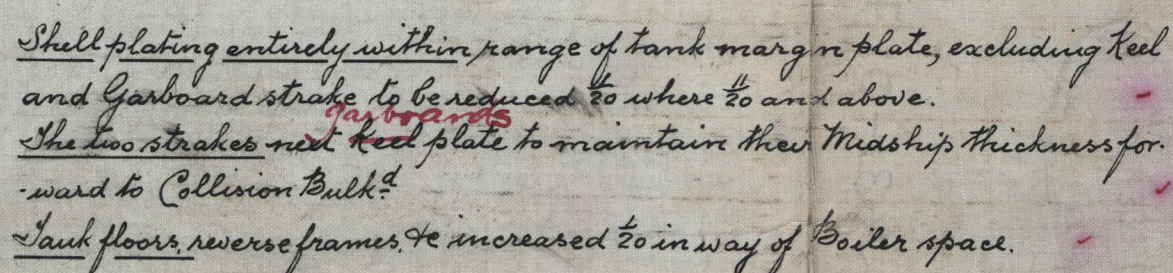 Shell plating entirely within range of tank margin plate, excluding Keel
and Garboard strake to be reduced 1/20 where 11/20 and above.
garboards
The two strakes next keel plate to maintain their Midship thickness for-
-ward to Collision Bulkd
Tank floors, reverse frames, &c increased 1/20 in way of Boiler space.